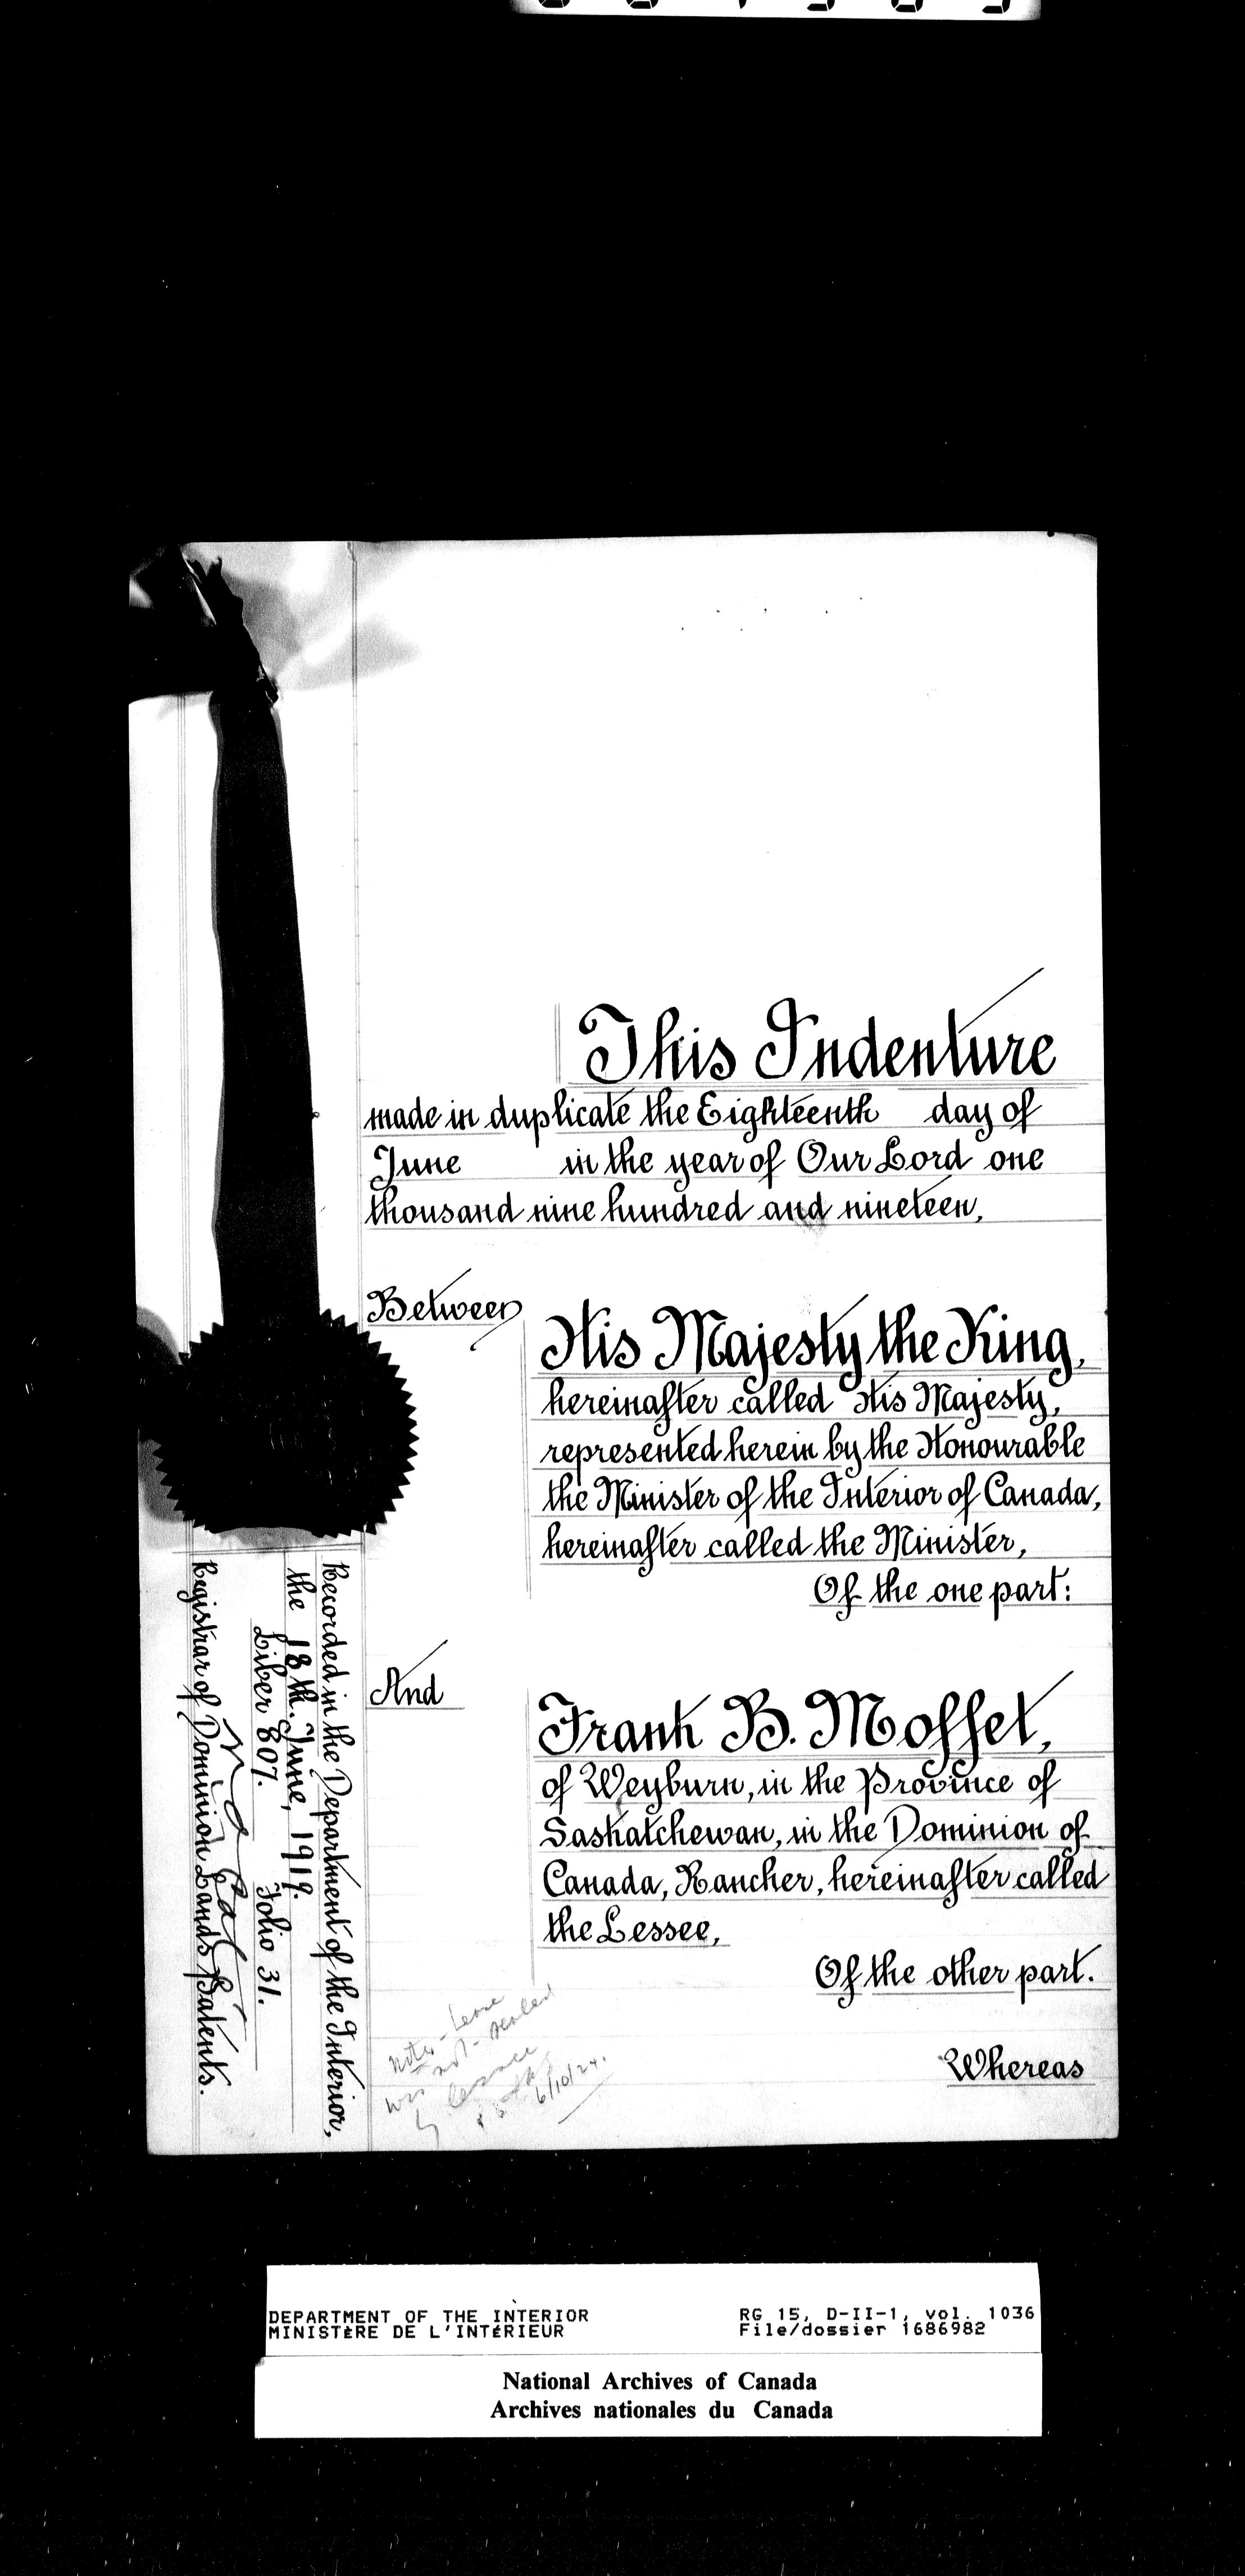 This Indenture
made in duplicate the Eighteenth day of
June in the year of Our Lord one
thousand nine hundred and nineteen,
Between
His Majesty the King,
hereinafter called His Majesty,
represented herein by the Honourable
the Minister of the Interior of Canada,
hereinafter called the Minister,
Of the one part:
And
Frank B. Moffet,
of Weyburn, in the Province of
Saskatchewan, in the Dominion of
Canada, Rancher, hereinafter called
the Lessee,
Of the other part.
Whereas
Recorded in the Department of the Interior,
the 18th. June, 1919.
Liber 807. Folio 31.
Registrar of Dominion Lands Patents.
Note - Lease
was not sealed
by lessee
6/10/24.
DEPARTMENT OF THE INTERIOR
MINISTÈRE DE L'INTÉRIEUR
RG 15, D-II-1, vol. 1036
File/dossier 1686982
National Archives of Canada
Archives nationales du Canada